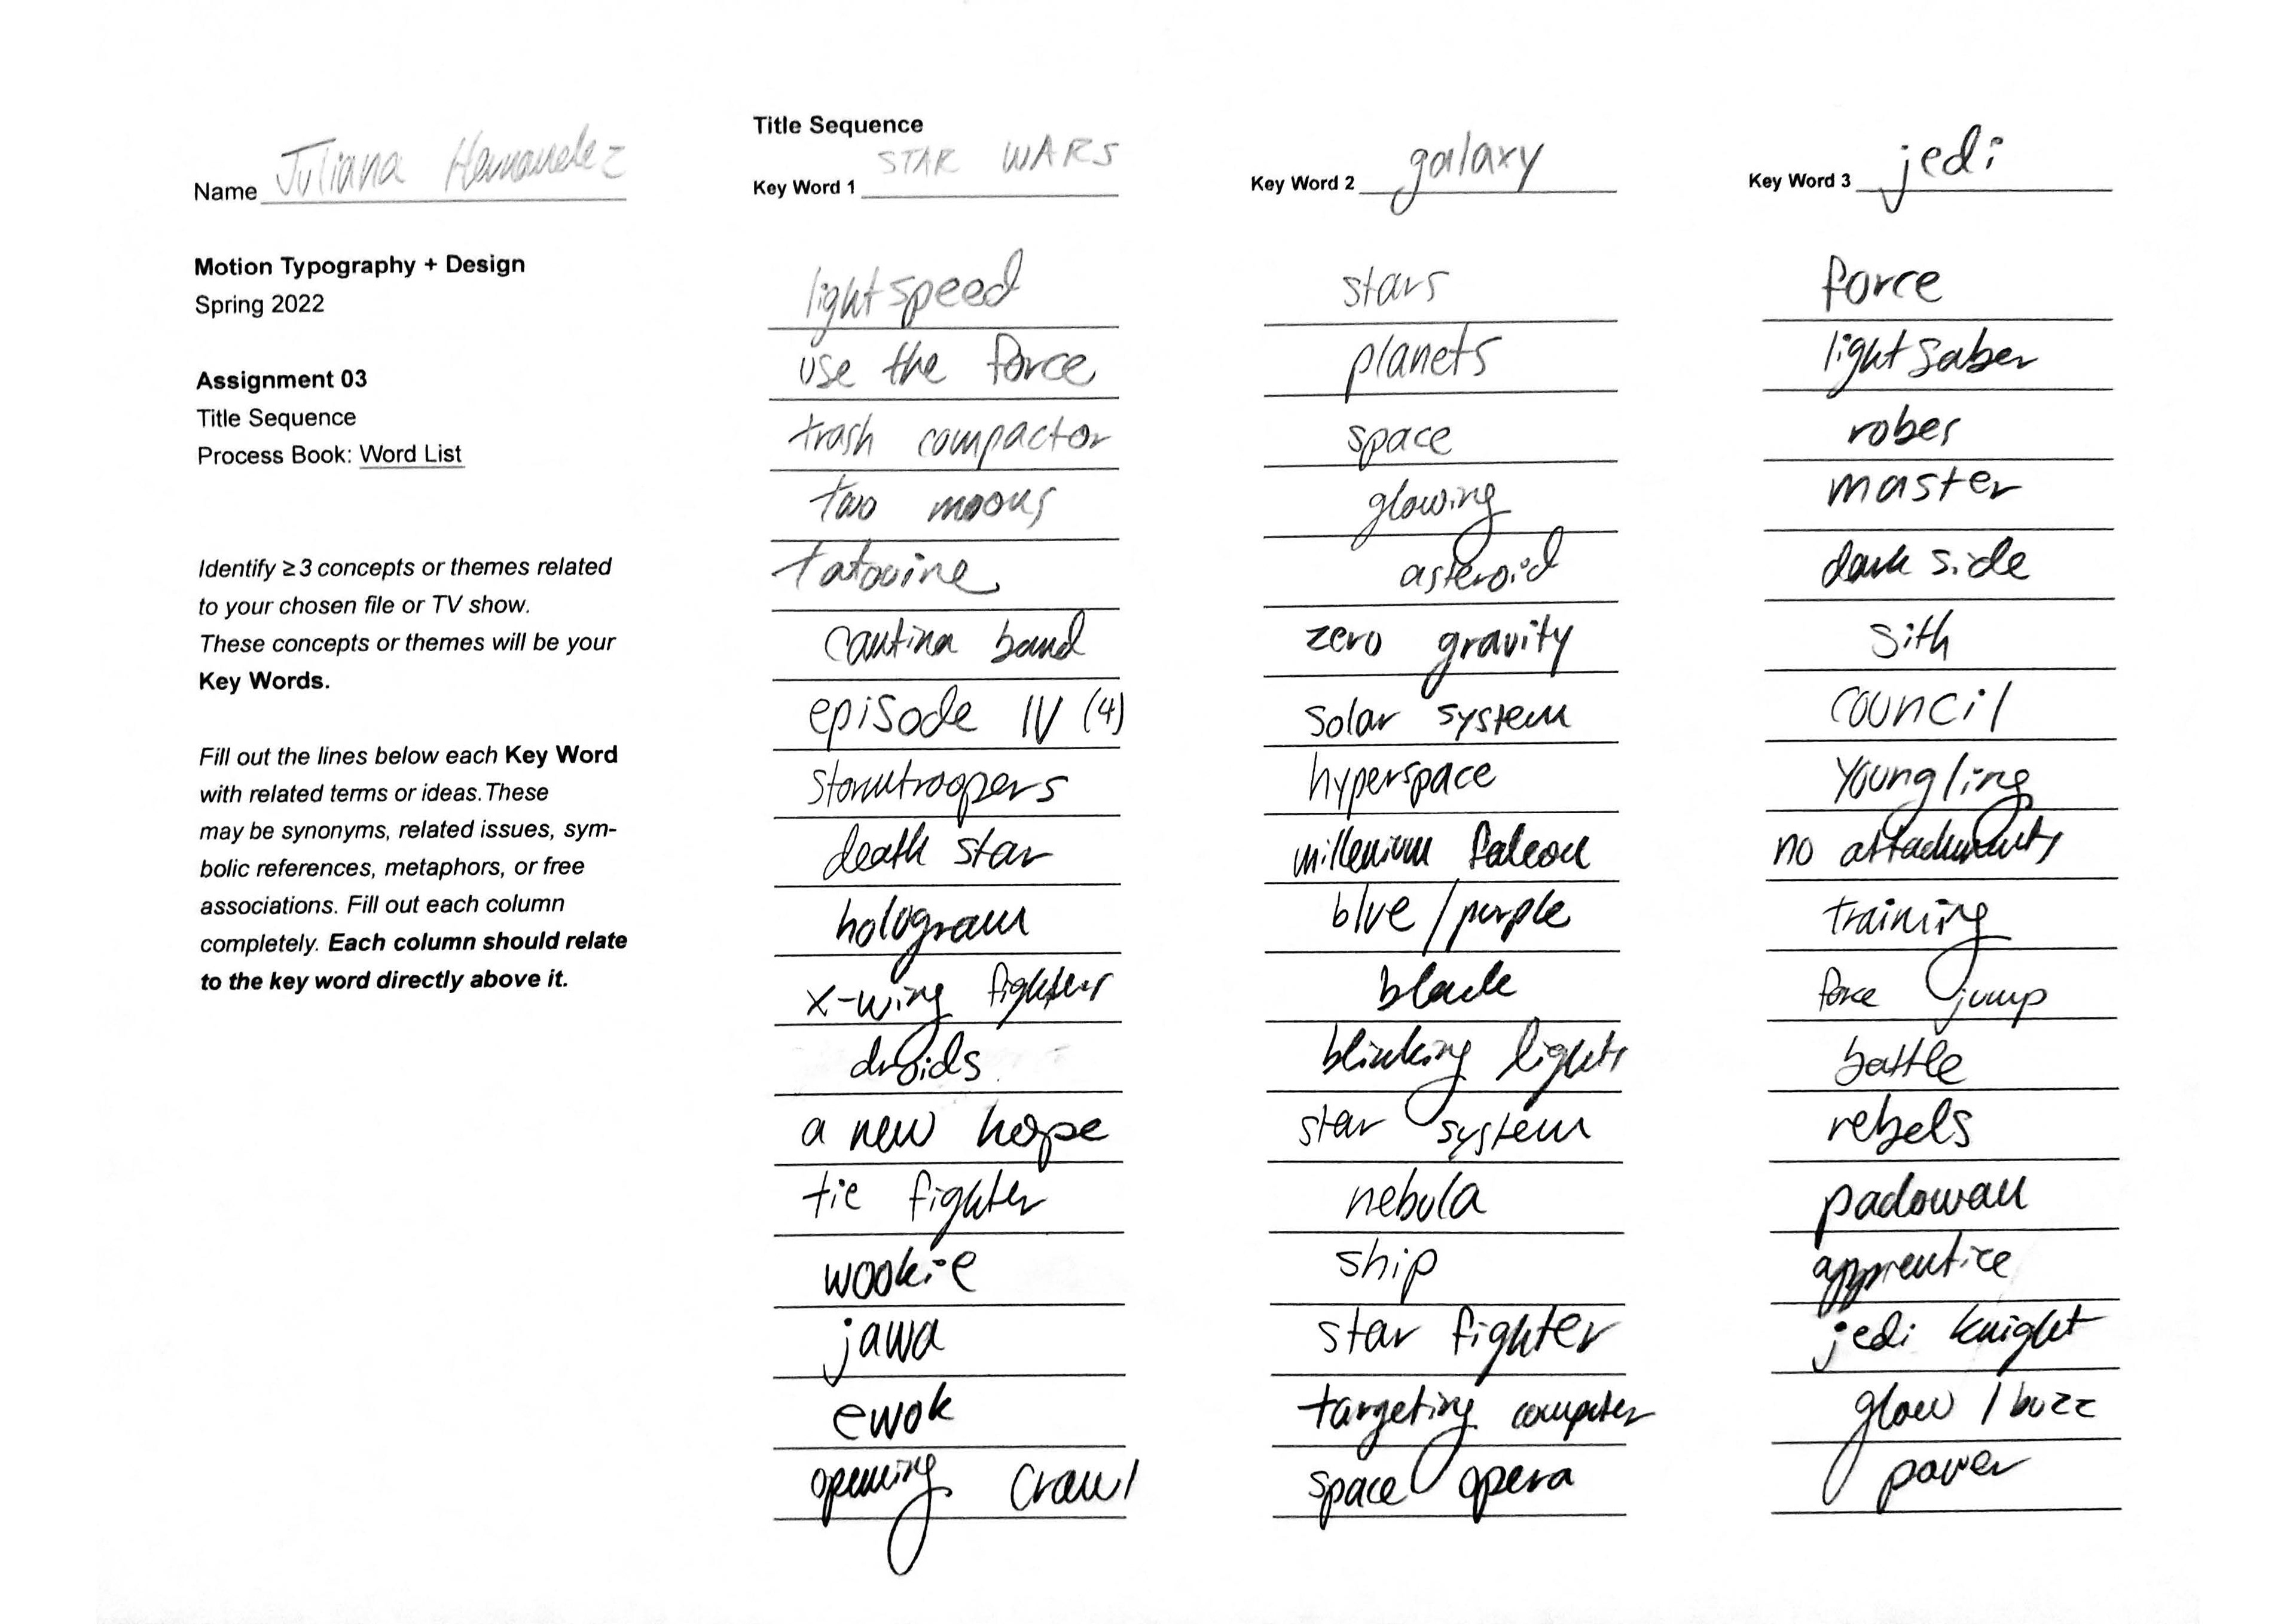 Name Juliana Hernandez
Motion Typography + Design
Spring 2022
Assignment 03
Title Sequence
Process Book: Word List
Identify ≥3 concepts or themes related
to your chosen file or TV show.
These concepts or themes will be your
Key Words.
Fill out the lines below each Key Word
with related terms or ideas. These
may be synonyms, related issues, sym-
bolic references, metaphors, or free
associations. Fill out each column
completely. Each column should relate
to the key word directly above it.
Title Sequence
Key Word 1 STAR WARS
lightspeed
use the force
trash compactor
two moons
tatooine
cantina band
episode IV (4)
stormtroopers
death star
hologram
x-wing fighter
droids
a new hope
tie fighter
wookie
jawa
ewok
opening crawl
Key Word 2 galaxy
stars
planets
space
glowing
asteroid
zero gravity
solar system
hyperspace
millenium falcon
blue / purple
black
blinking lights
star system
nebula
ship
star fighter
targeting computer
space opera
Key Word 3 jedi
force
light saber
robes
master
dark side
sith
council
youngling
no attachments
training
force jump
battle
rebels
padowan
apprentice
jedi knight
glow / buzz
power